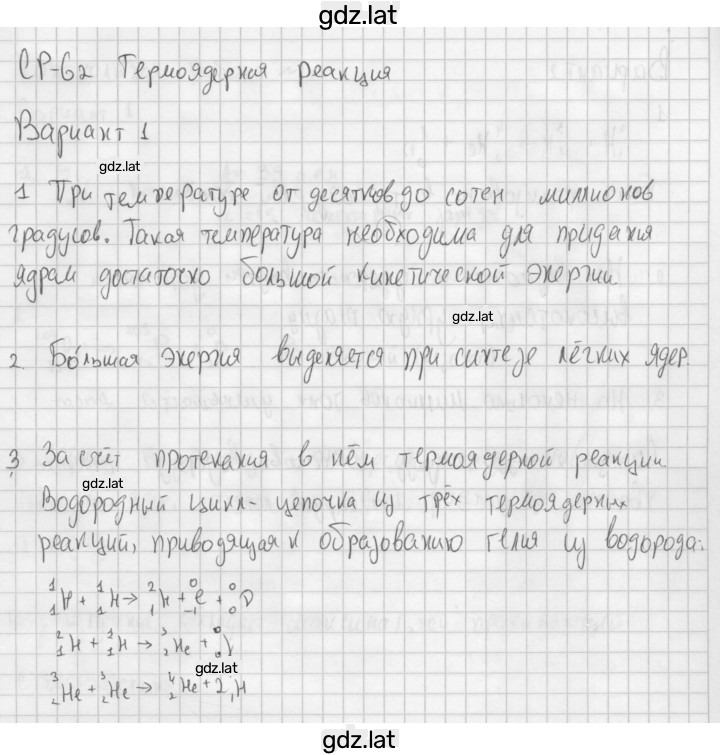 gdz.lat
СР-62 Термоядерная реакция
Вариант 1
gdz.lat
1 При температуре от десятков до сотен миллионов
градусов. Такая температура необходима для придания
ядрам достаточно большой кинетической энергии.
gdz.lat
2. Бо́льшая энергия выделяется при синтезе лёгких ядер.
3 За счёт протекания в нём термоядерной реакции.
gdz.lat
Водородный цикл- цепочка из трёх термоядерных
реакций, приводящая к образованию гелия из водорода:
¹₁H + ¹₁H → ²₁H + ⁰₋₁e + ⁰₀ν
²₁H + ¹₁H → ³₂He + ⁰₀γ
gdz.lat
³₂He + ³₂He → ⁴₂He + 2¹₁H
gdz.lat